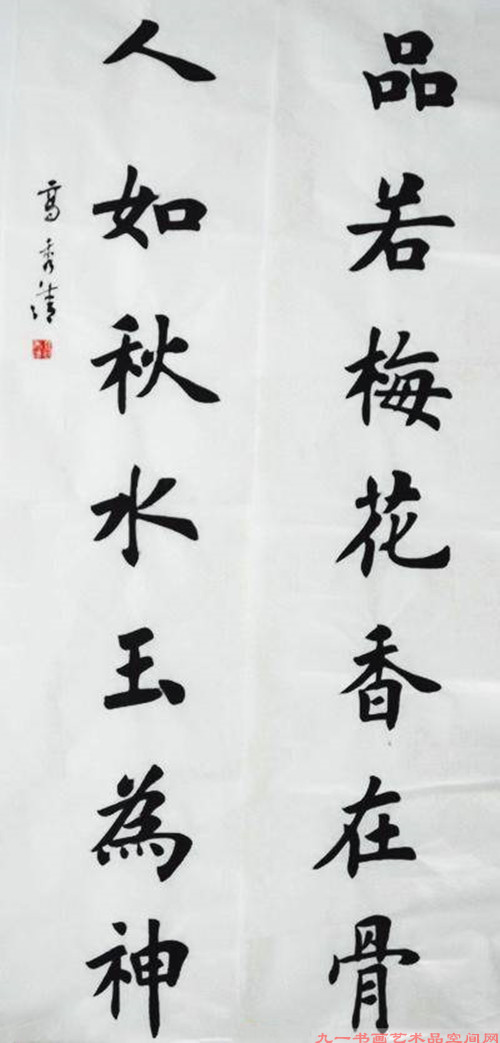 品若梅花香在骨
人如秋水玉為神
高秀清
九一书画艺术品空间网